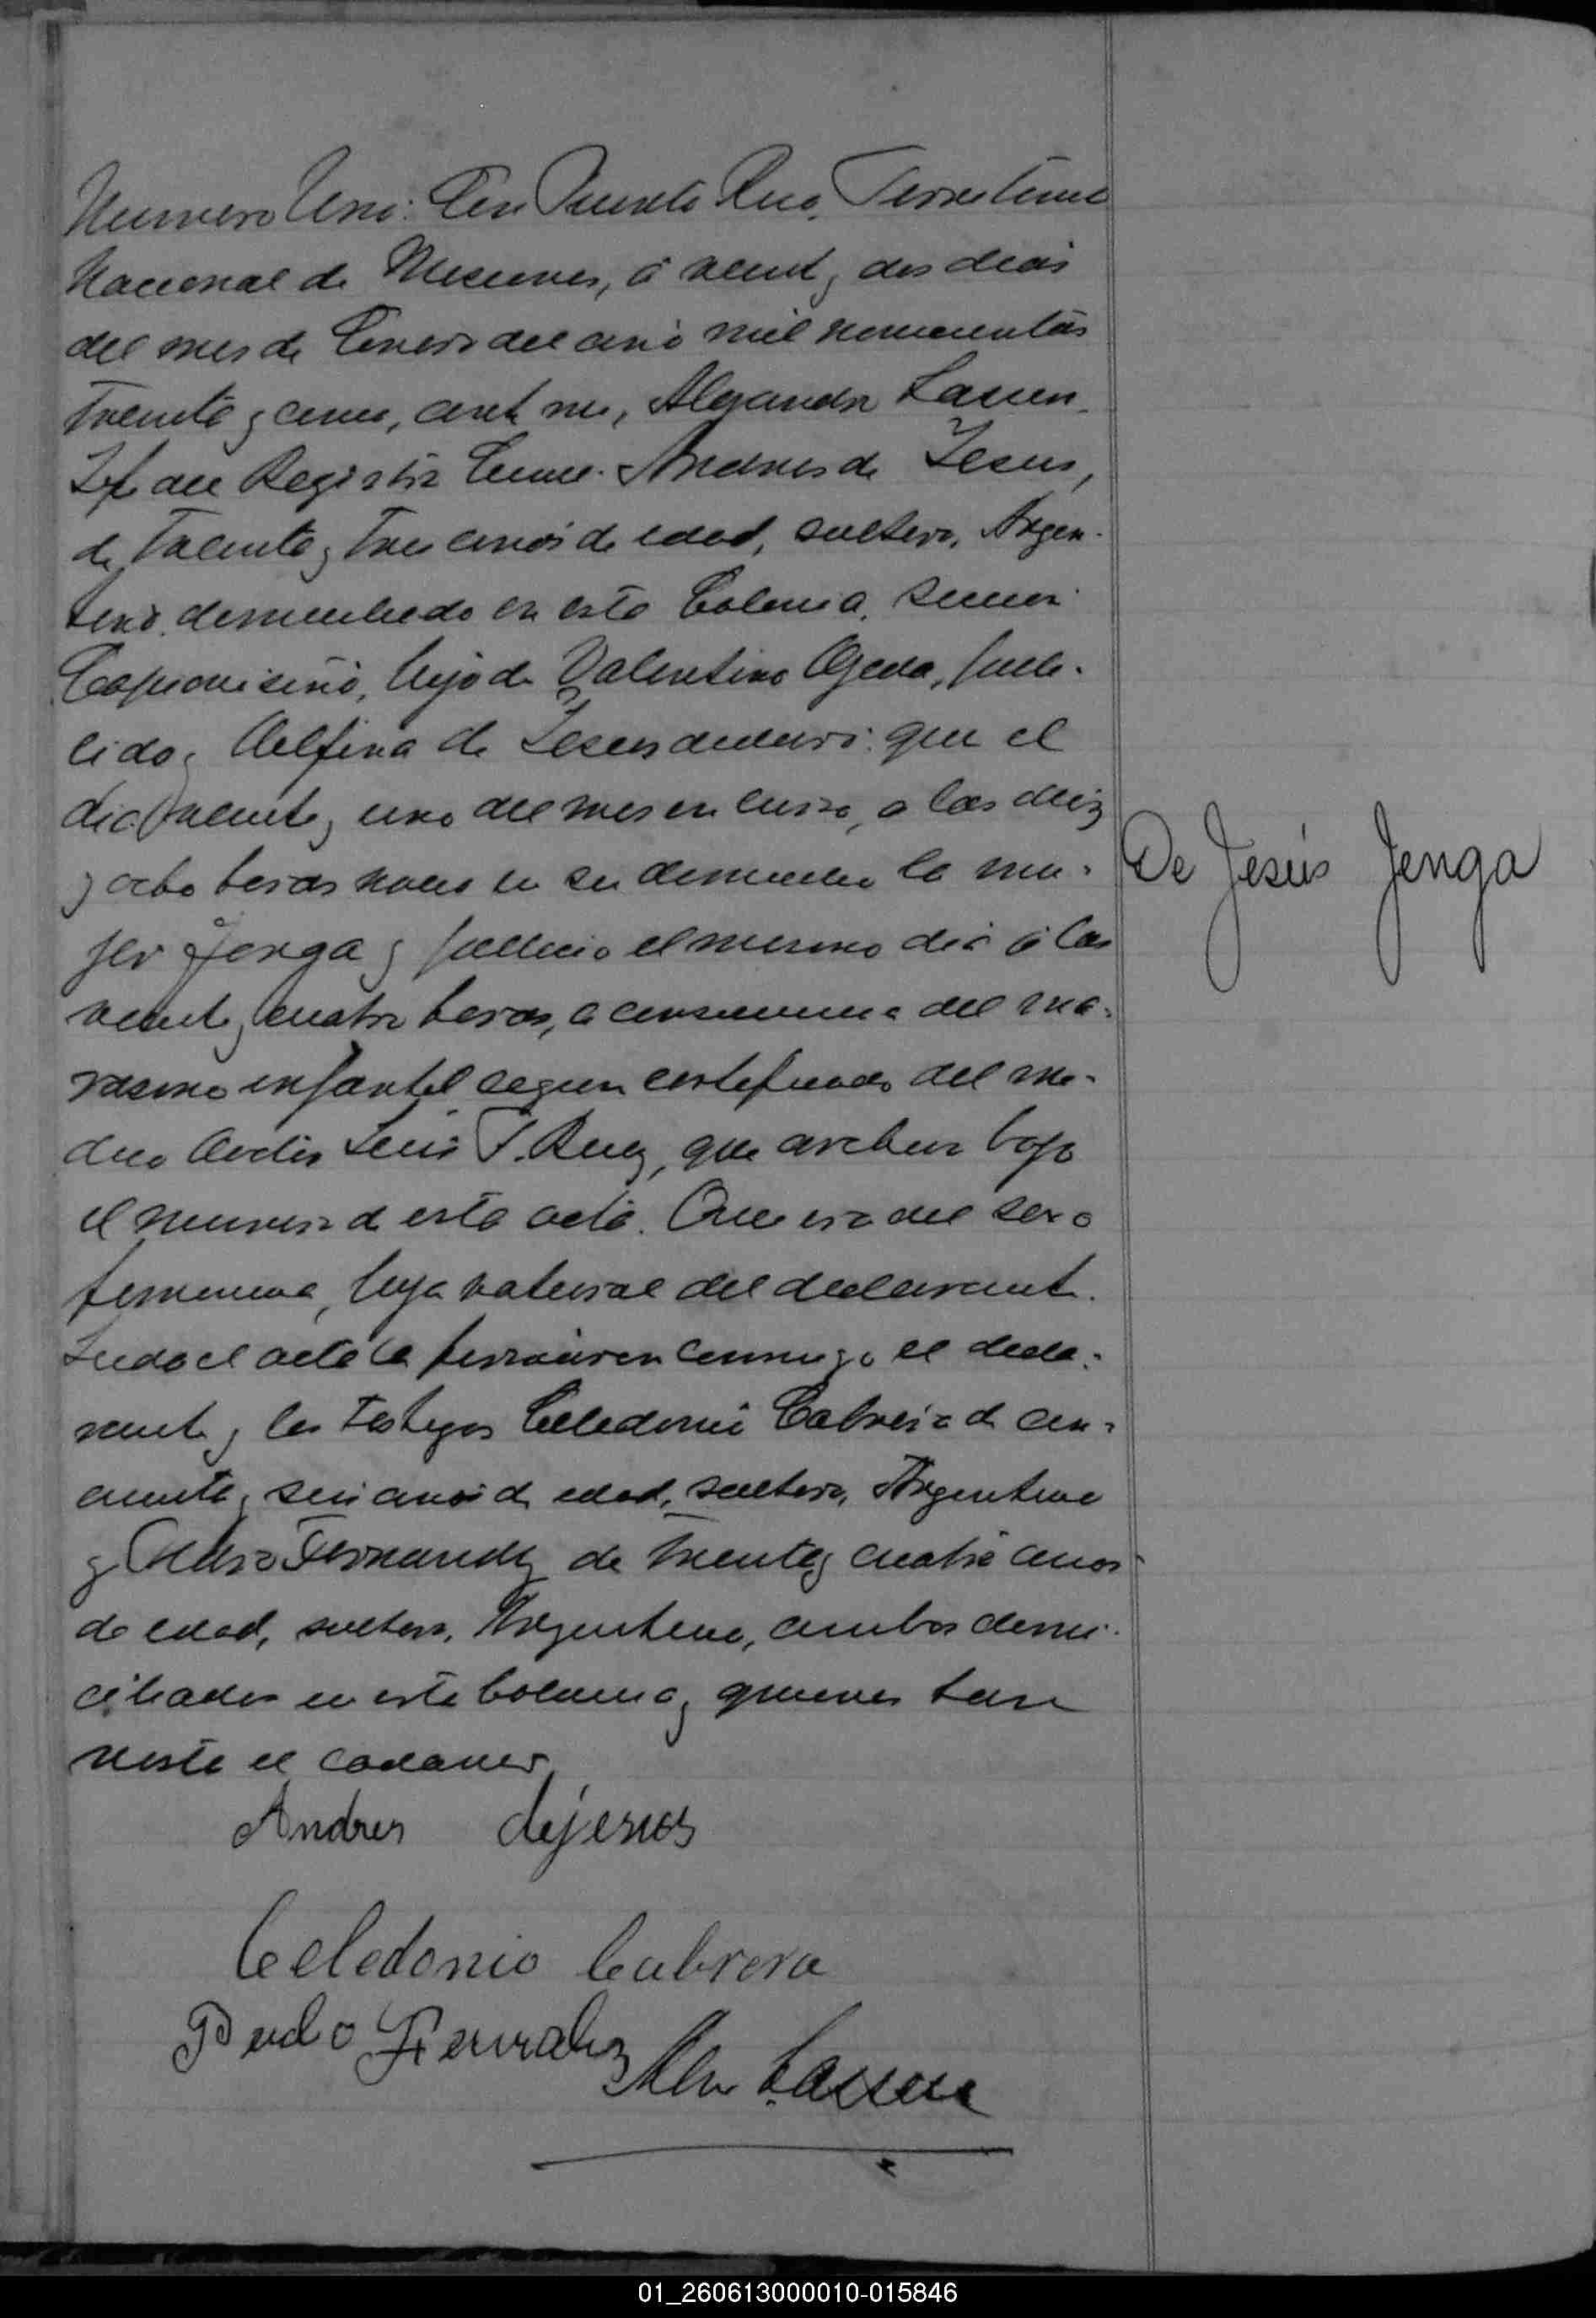 Numero Uno: En Puerto Rico, Territorio
Nacional de Misiones, á veinte y dos dias
del mes de Enero del año mil novecientos
treinta y cinco, ante mi, Alejandro Lassen
Jefe del Registro Civil. Andres de Jesus,
de treinta y tres años de edad, soltero, Argen-
tino, domiciliado en esta Colonia, seccion
Capiovisiño, hijo de Valentino Ojeda, falle-
cido y Delfina de Jesus declaró: que el
dia veinte y uno del mes en curso, a las diez
y ocho horas nacio en su domicilio la mu-
jer Jenga y fallecio el mismo dia á las
veinte y cuatro horas, a consecuencia del ma-
rasmo infantil segun certificado del me-
dico Doctor Luis T. Ruiz, que archivo bajo
el numero de esta acta. Que era del sexo
femenino, hija natural del declarante.
Leido el acta la firmaron conmigo el decla-
rante y los testigos Celedonio Cabrera de cin-
cuenta y seis años de edad, soltero, Argentino
y Pedro Fernandez de treinta y cuatro años
de edad, soltero, Argentino, ambos domi-
ciliados en esta Colonia y quienes han
visto el cadaver
De Jesús Jenga
Andres dejesus
Celedonio Cabrera
Pedro
Lassen
01_260613000010-015846